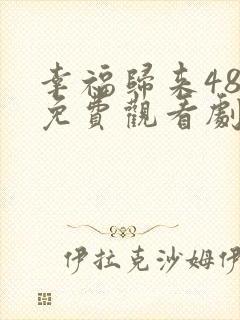 幸福歸來48
免費觀看劇
伊拉克沙姆伊